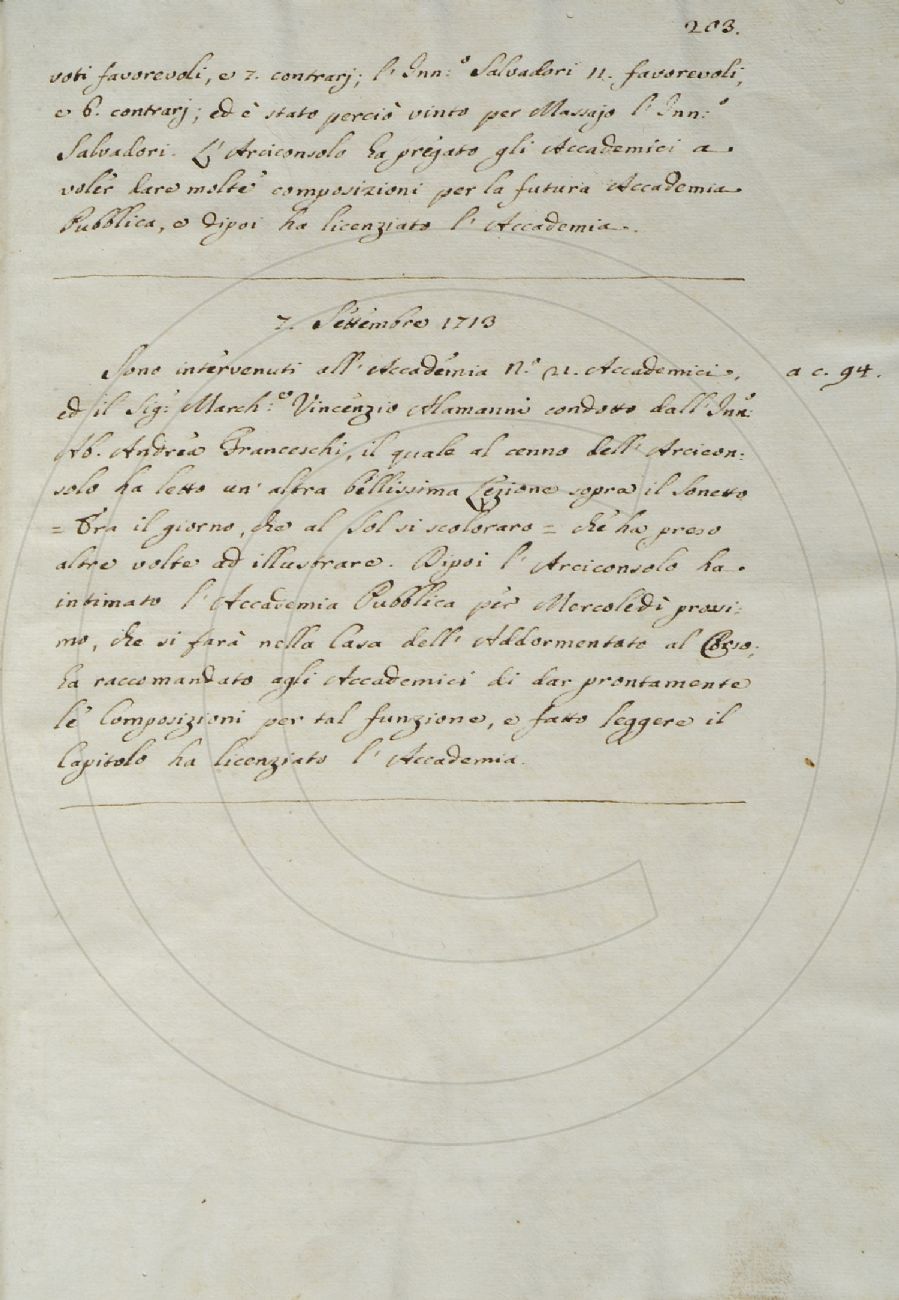 203.
voti favorevoli, e 7. contrarj; l'Inn:º Salvadori 11. favorevoli,
e 6. contrarj; ed è stato perciò vinto per Massajo l'Inn:º
Salvadori. L'Arciconsolo ha pregato gli Accademici a
voler dare molte composizioni per la futura Accademia
Pubblica, e dipoi ha licenziato l'Accademia.
7. Settembre 1713
Sono intervenuti all'Accademia N.º 21. Accademici, a c. 94.
ed il Sig: March:º Vincenzio Alamanni condotto dall'Inn:º
Ab. Andrea Franceschi, il quale al cenno dell'Arcicon:
solo ha letto un'altra bellissima Lezione sopra il Sonetto
= Era il giorno, che al Sol si scoloraro = che ha preso
altre volte ad illustrare. Dipoi l'Arciconsolo ha
intimato l'Accademia Pubblica per Mercoledì prossi:
mo, che si farà nella Casa dell'Addormentato al Corso;
ha raccomandato agli Accademici di dar prontamente
le Composizioni per tal funzione, e fatto leggere il
Capitolo ha licenziato l'Accademia.